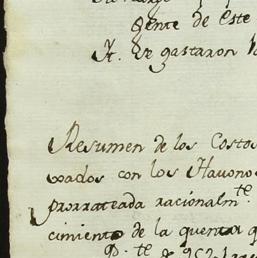 gente de este
It. se gastaron
Resumen de los Costos
xados con los Havono
prorrateada racionalmte
cimiento de la quenta q